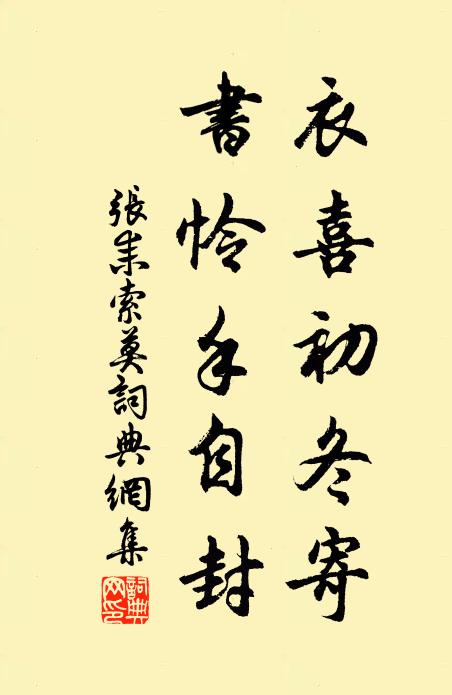 衣喜初冬寄
書怜手自封
張耒索莫詞典網集
詞典
网印